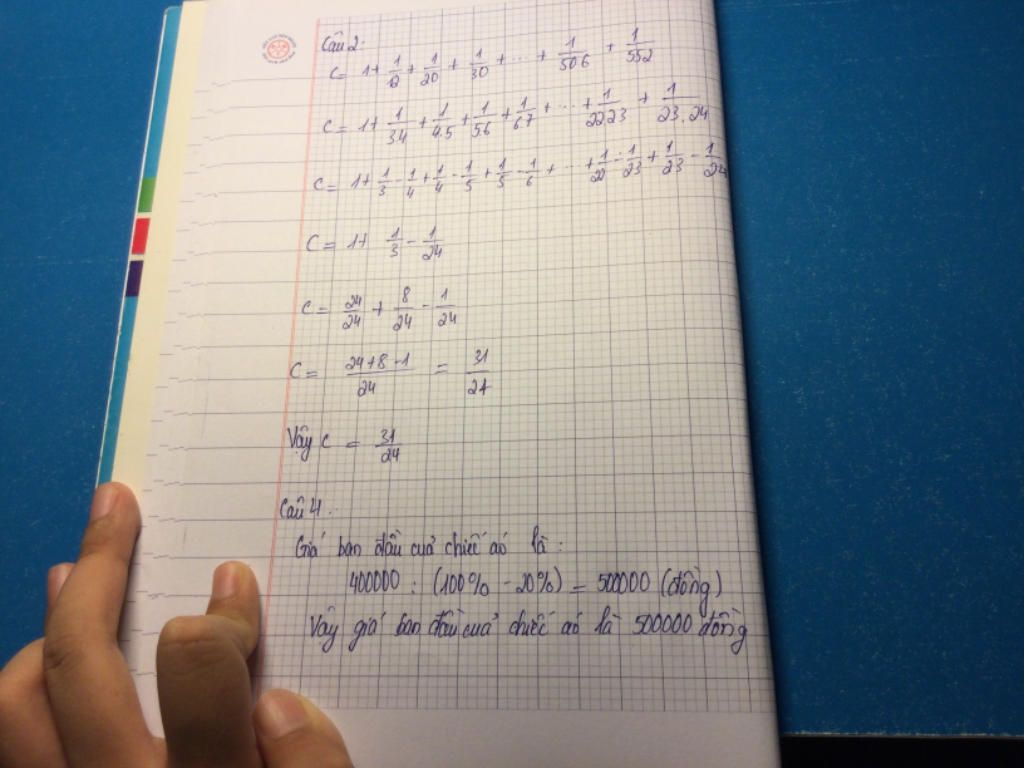 Câu 2:
C = 1 + 1/12 + 1/20 + 1/30 + ... + 1/506 + 1/552
C = 1 + 1/3.4 + 1/4.5 + 1/5.6 + 1/6.7 + ... + 1/22.23 + 1/23.24
C = 1 + 1/3 - 1/4 + 1/4 - 1/5 + 1/5 - 1/6 + ... + 1/22 - 1/23 + 1/23 - 1/24
C = 1 + 1/3 - 1/24
C = 24/24 + 8/24 - 1/24
C = 24+8-1/24 = 31/24
Vậy C = 31/24
Câu 4.
Giá ban đầu cuả chiếc aó là:
400000 : (100% - 20%) = 500000 (đồng)
Vâỵ giá ban đầu cuả chiếc aó là 500000 đồng